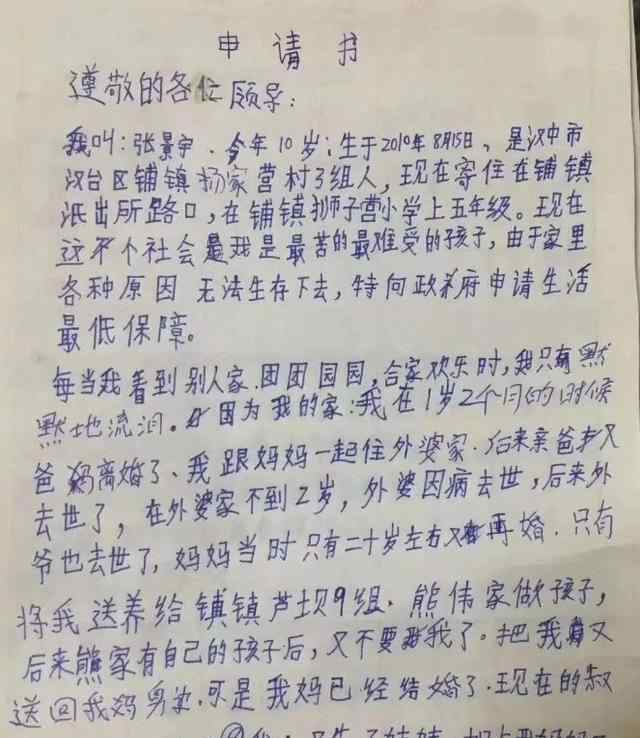 申请书
遵敬的各位领导：
我叫：张景宇、今年10岁；生于2010年8月15日，是汉中市
汉台区铺镇杨家营村3组人，现在寄住在铺镇
派出所路口，在铺镇狮子营小学上五年级。现在
这个社会是我是最苦的最难受的孩子，由于家里
各种原因无法生存下去，特向政府申请生活
最低保障。
每当我看到别人家.团团园园，合家欢乐时，我只有默
默地流泪。因为我的家：我在1岁2个月的时候
爸妈离婚了、我跟妈妈一起住外婆家.后来亲爸又
去世了，在外婆家不到2岁，外婆因病去世，后来外
爷也去世了，妈妈当时只有二十岁左右又再婚.只有
将我送养给镇镇芦坝9组.熊伟家做孩子，
后来熊家有自己的孩子后，又不要我了。把我又
送回我妈身边.可是我妈已经结婚了.现在的叔